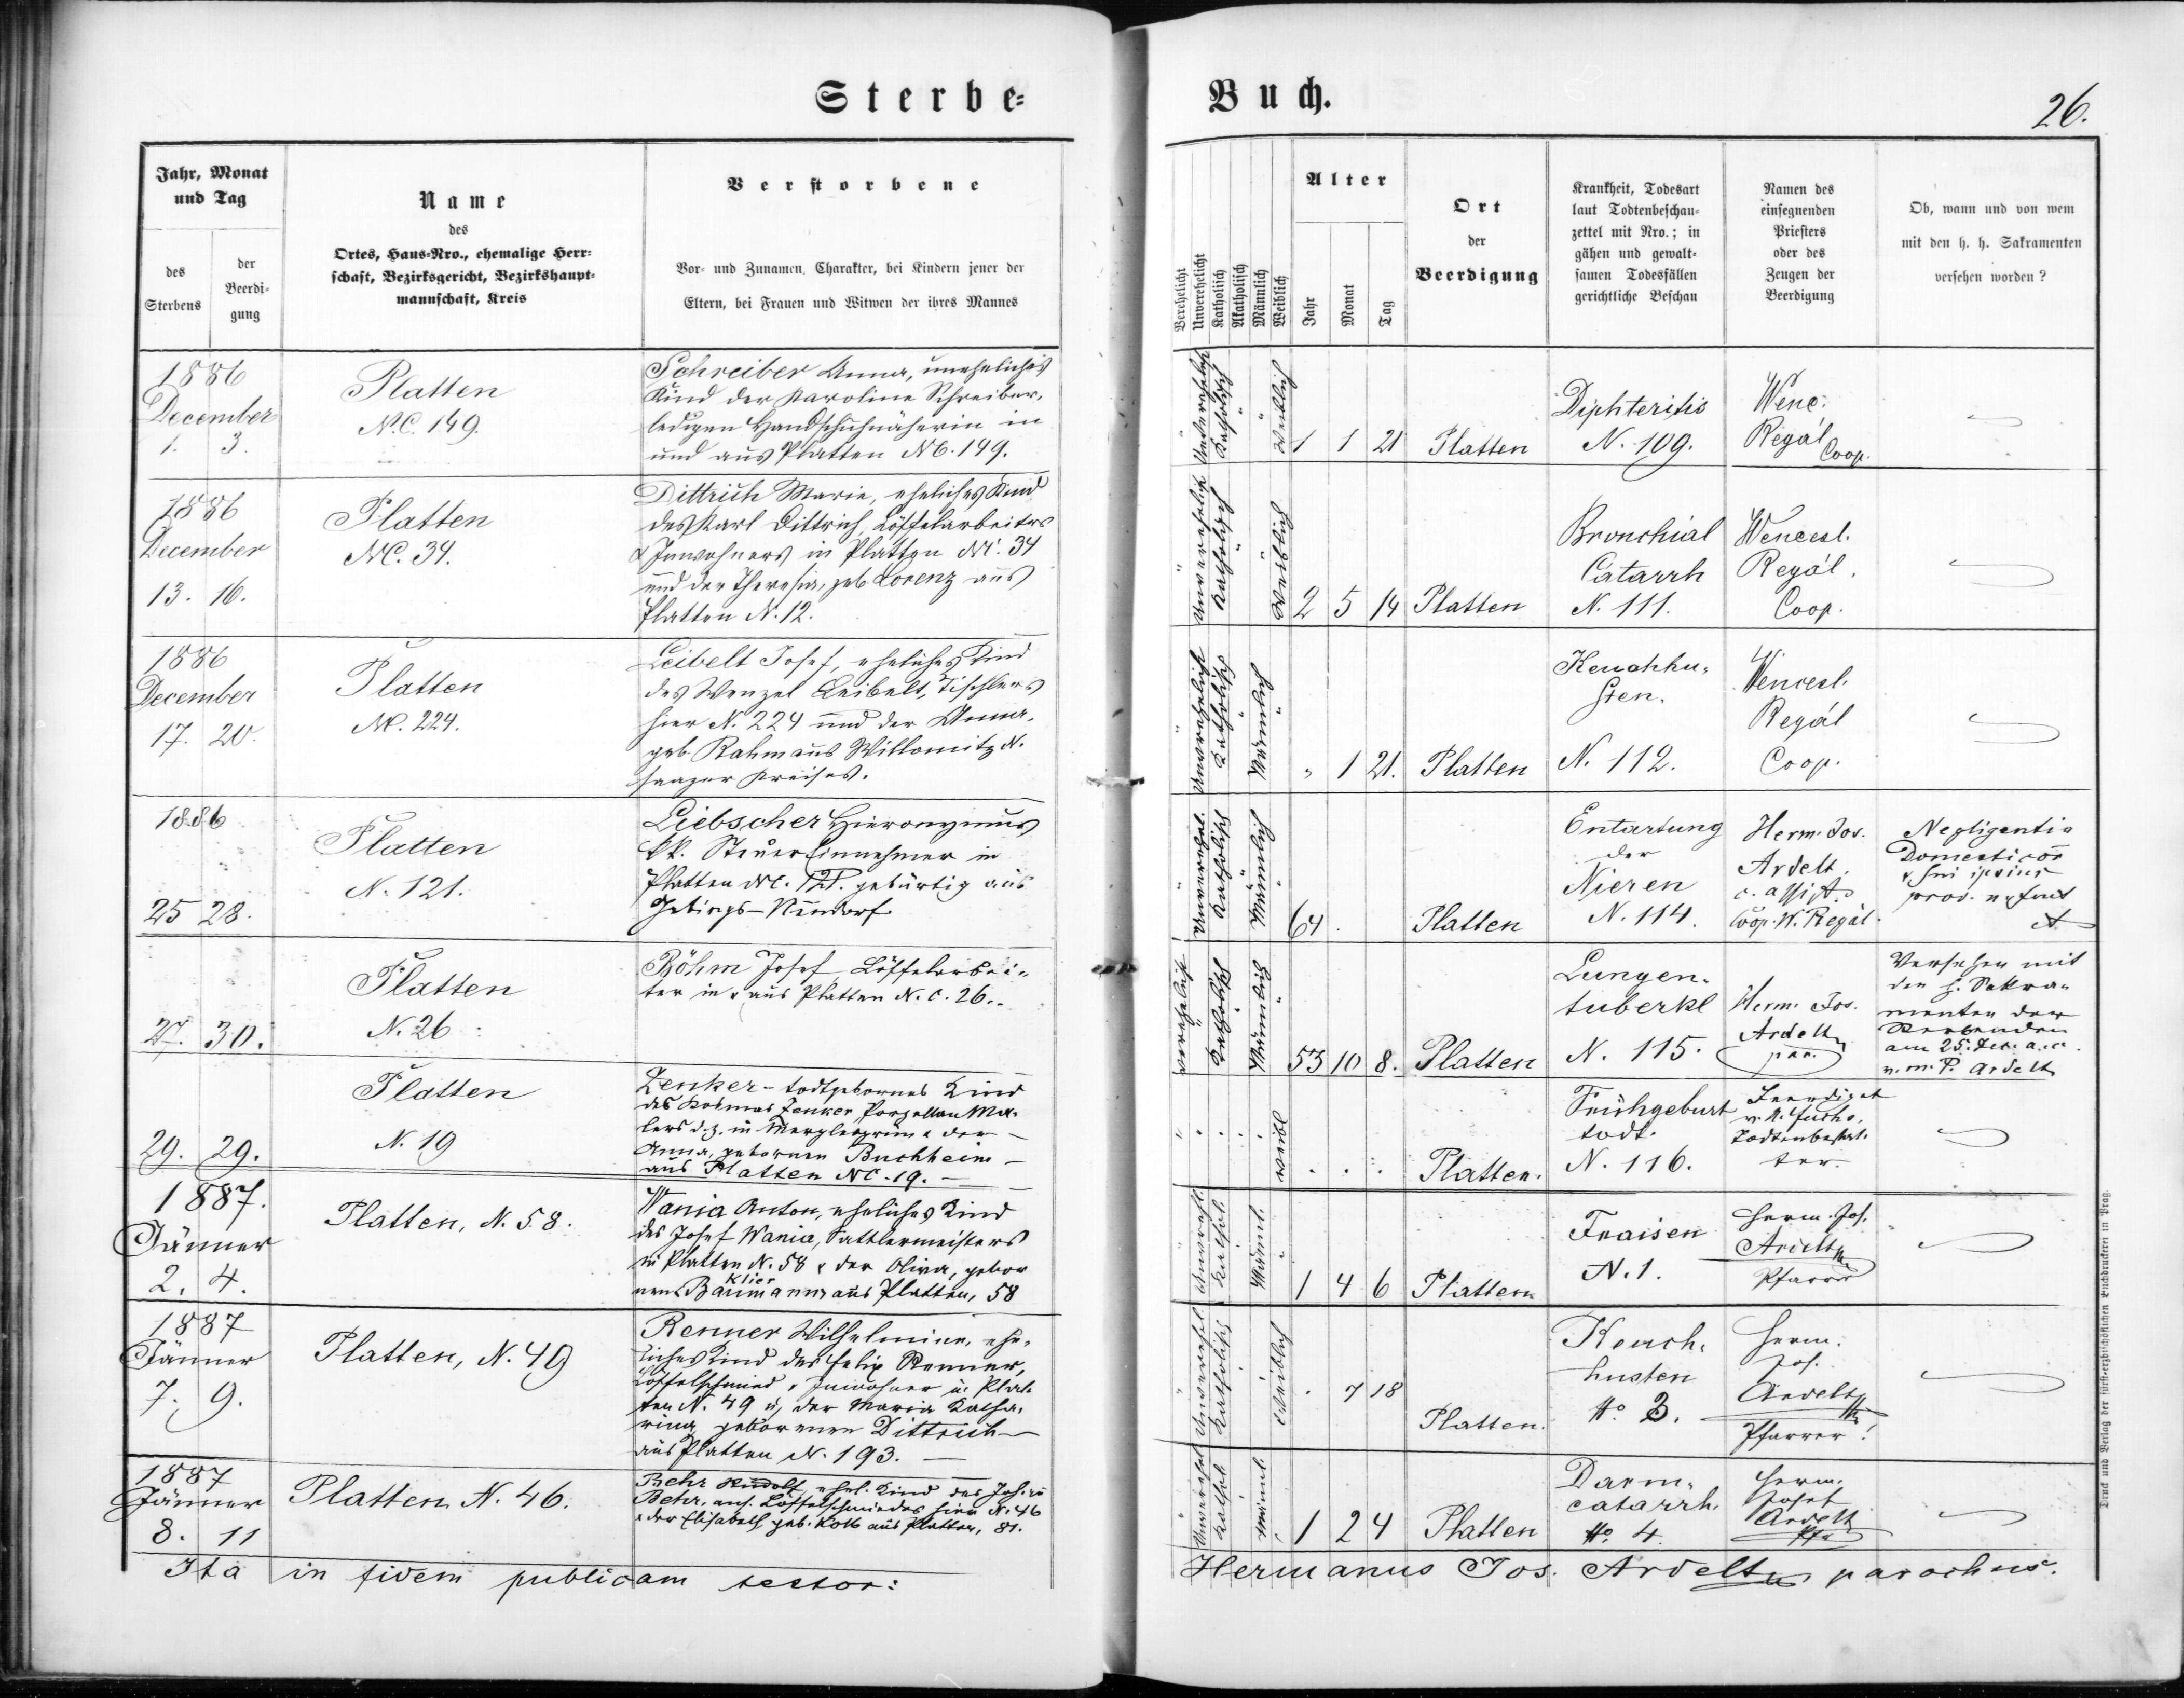 Sterbe-
Jahr, Monat
und Tag
des
Sterbens
der
Beerdi-
gung
Name
des
Ortes, Haus-Nro., ehemalige Herr-
schaft, Bezirksgericht, Bezirkshaupt-
mannschaft, Kreis
Verstorbene
Vor- und Zunamen, Charakter, bei Kindern jener der
Eltern, bei Frauen und Witwen der ihres Mannes
1886
December
1. 3.
Platten
N.C. 149.
Schreiber Anna, uneheliches
Kind der Karoline Schreiber,
ledigen Handschuhnäherin in
und aus Platten NC. 149.
1886
December
13. 16.
Platten
NC. 34.
Dittrich Marie, eheliches Kind
des Karl Dittrich, Löffelarbeiters
& Inwohners in Platten NC. 34
und der Theresia, geb. Lorenz aus
Platten N. 12.
1886
December
17. 20.
Platten
NC. 224.
Leibelt Josef, eheliches Kind
des Wenzel Leibelt, Tischlers
hier N. 224 und der Anna,
geb. Rahm aus Willomitz N.
Saazer Kreises.
1886
25 28.
Platten
N. 121.
Liebscher Hieronymus
kk. Steuer Einnehmer in
Platten NC. 121. gebürtig aus
Gebirgs-Neudorf
27. 30.
Platten
N. 26
Böhm Josef, Löffelarbei-
ter in & aus Platten N.C. 26.
29. 29.
Platten
N. 19
Zenker - todtgebornes Kind
des Kosmas Zenker, Porzellan Ma-
lers d.z. in & der
Anna, gebornen Buchheim -
aus Platten NC. 19. -
1887.
Jänner
2. 4.
Platten, N. 58.
Wania Anton, eheliches Kind
des Josef Wania, Sattlermeisters
in Platten N. 58 & der Olina, gebor
Klier
nen Baumann, aus Platten, 58
1887
Jänner
7. 9.
Platten, N. 49
Renner Wilhelmine, ehe-
liches Kind des Felix Renner,
Löffelschmied & Inwohner in Plat-
ten N. 49 u. der Maria Katha-
rina, gebornen Dittrich
aus Platten N. 193. -
1887
Jänner
8. 11
Platten N. 46.
Behr Rudolf, ehel. Kind des Jos.
Behr, Löffelschmiedes hier N. 46
& der Elisabeth geb. Kolb aus Platten, 81.
Ita in fidem publicam testor:
Buch.
26.
Verehelicht
Unverehelicht
Katholisch
Akatholisch
Männlich
Weiblich
Alter
Jahr
Monat
Tag
Ort
der
Beerdigung
Krankheit, Todesart
laut Todtenbeschau-
zettel mit Nro.; in
gähen und gewalt-
samen Todesfällen
gerichtliche Beschau
Namen des
einsegnenden
Priesters
oder des
Zeugen der
Beerdigung
Ob, wann und von wem
mit den h. h. Sakramenten
versehen worden?
Unverehelicht
Katholisch
Weiblich
1 1 21
Platten
Diphteritis
N. 109.
Wenc.
Regál
Coop.
Unverehelicht
Katholisch
Weiblich
2 5 14
Platten
Bronchial
Catarrh
N. 111.
Wencesl.
Regál.
Coop.
Unverehelicht
Katholisch
Männlich
" 1 21.
Platten
Keuchhu-
sten.
N. 112.
Wencesl.
Regál
Coop.
Unverehel.
Katholisch
Männlich
64.
Platten
Entartung
der
Nieren
N. 114.
Herm. Jos.
Ardelt.
c. assist.
Coop. W. Regál.
Negligentia
Domesticor
& sui ipsius
Verehelicht
Katholisch
Männlich
53 10 8.
Platten
Lungen-
tuberkl
N. 115.
Herm. Jos.
Ardelt
par.
Versehen mit
den h. Sakra-
menten der
Sterbenden
am 25. Dec. a. c.
v. m. P. Ardelt
weibl
Platten.
Frühgeburt
todt.
N. 116.
Beerdiget
v. A. Fuchs,
Todtenbestat-
ter.
Unverehl.
Kathol.
Männl.
1 4 6
Platten
Fraisen
N. 1.
Herm. Jos.
Ardelt
Pfarrer
Unverehel
Katholisch
Weiblich
. 7 18
Platten.
Keuch-
husten
No. 3.
Herm.
Jos.
Ardelt
Pfarrer!
Unverehel
Kathol.
Männl.
1 2 4
Platten
Darm-
catarrh.
No. 4.
Herm.
Josef
Ardelt
Pfr
Hermanus Jos. Ardelt parochus.
Druck und Verlag der fürsterzbischöflichen Buchdruckerei in Prag.